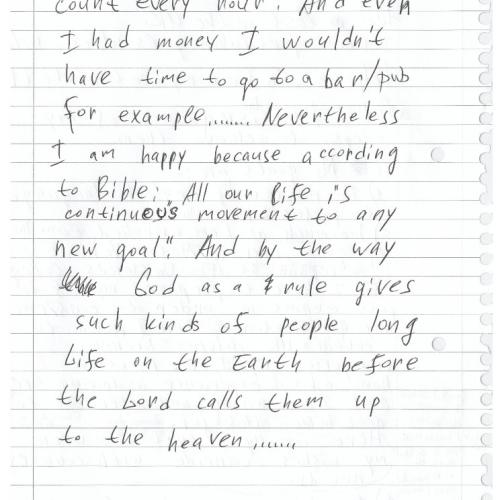 count every hour. And even
I had money I wouldn't
have time to go to a bar/pub
for example....... Nevertheless
I am happy because according
to Bible: „All our life is
continuous movement to any
new goal". And by the way
God as a rule gives
such kinds of people long
Life on the Earth before
the Lord calls them up
to the heaven......